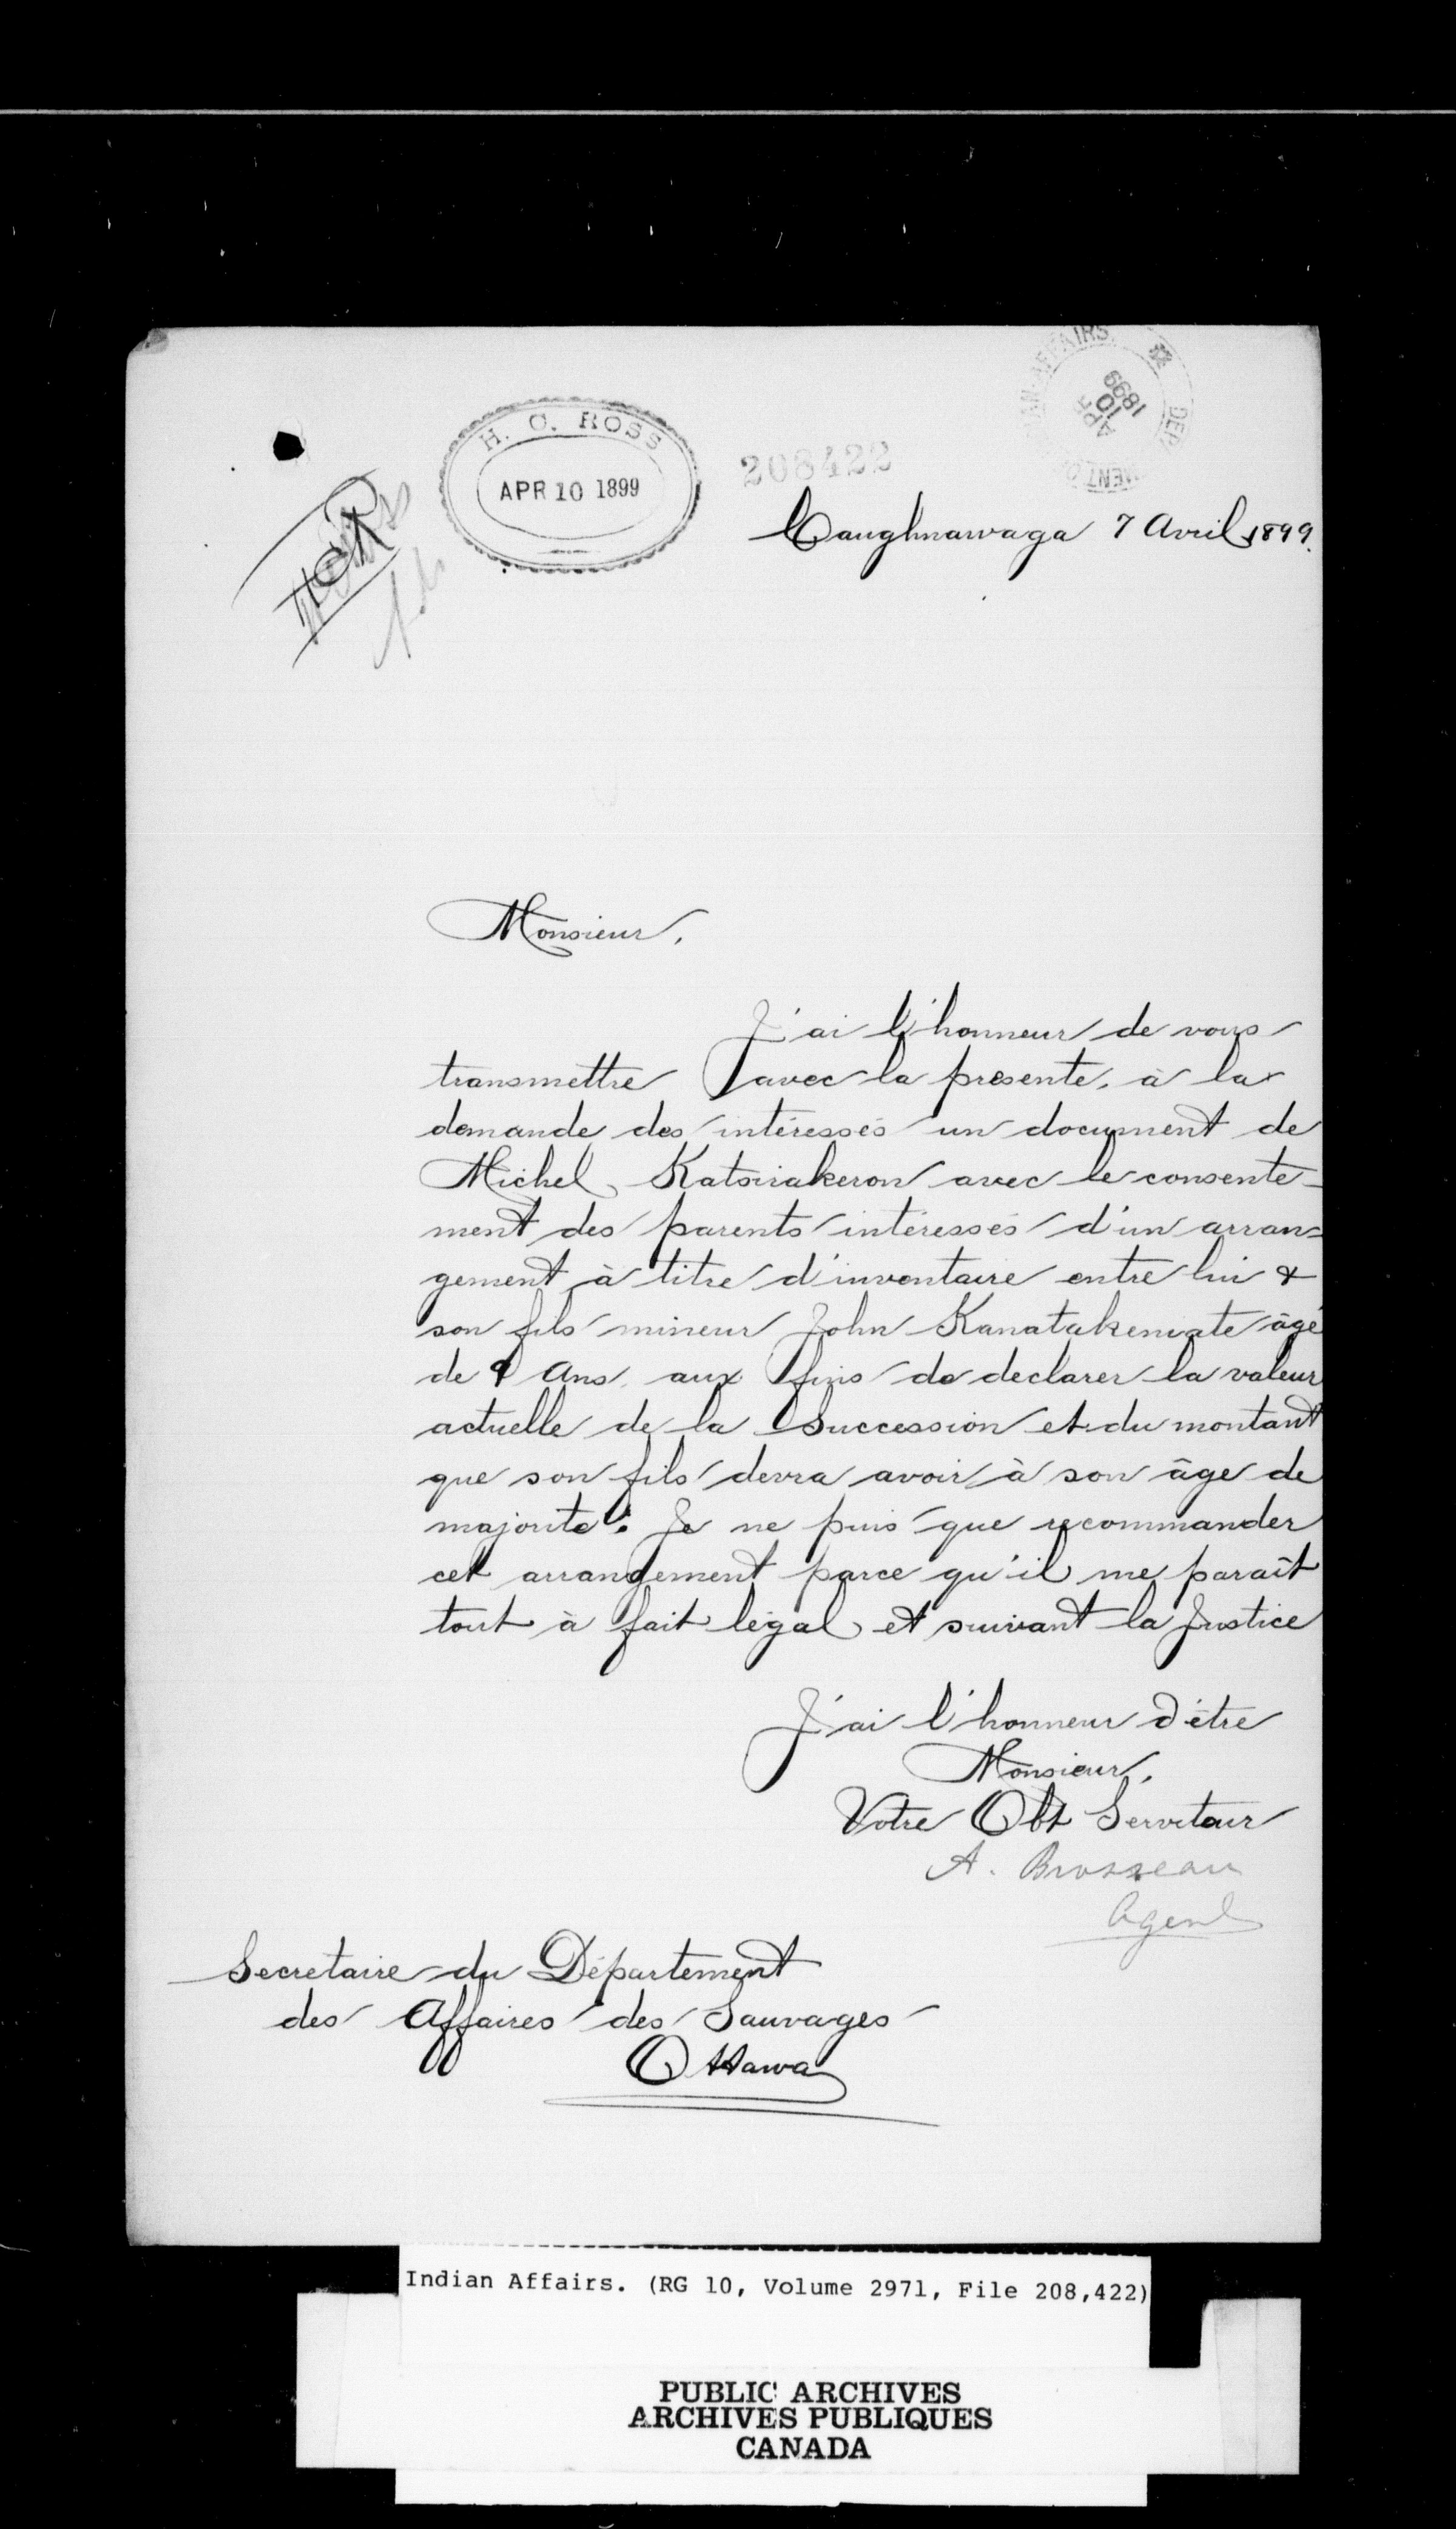 H. C. ROSS
APR 10 1899
208422
DEPARTMENT OF INDIAN AFFAIRS
APR 10 1899
HCR
Caughnawaga 7 Avril 1899.
Monsieur,
J'ai l'honneur de vous
transmettre avec la presente, à la
demande des intéressés un document de
Michel Katsirakeron avec le consente-
ment des parents intéressés d'un arran-
gement à titre d'inventaire entre lui &
son fils mineur John Kanatakeniate âgé
de 9 Ans, aux fins de declarer la valeur
actuelle de la Succession et du montant
que son fils devra avoir à son âge de
majorité. Je ne puis que recommander
cet arrangement parce qu'il me paraît
tout à fait légal et suivant la Justice
J'ai l'honneur d'être
Monsieur,
Votre Obt Serviteur
A. Brosseau
Agent
Secretaire du Département
des Affaires des Sauvages
Ottawa
Indian Affairs. (RG 10, Volume 2971, File 208,422)
PUBLIC ARCHIVES
ARCHIVES PUBLIQUES
CANADA